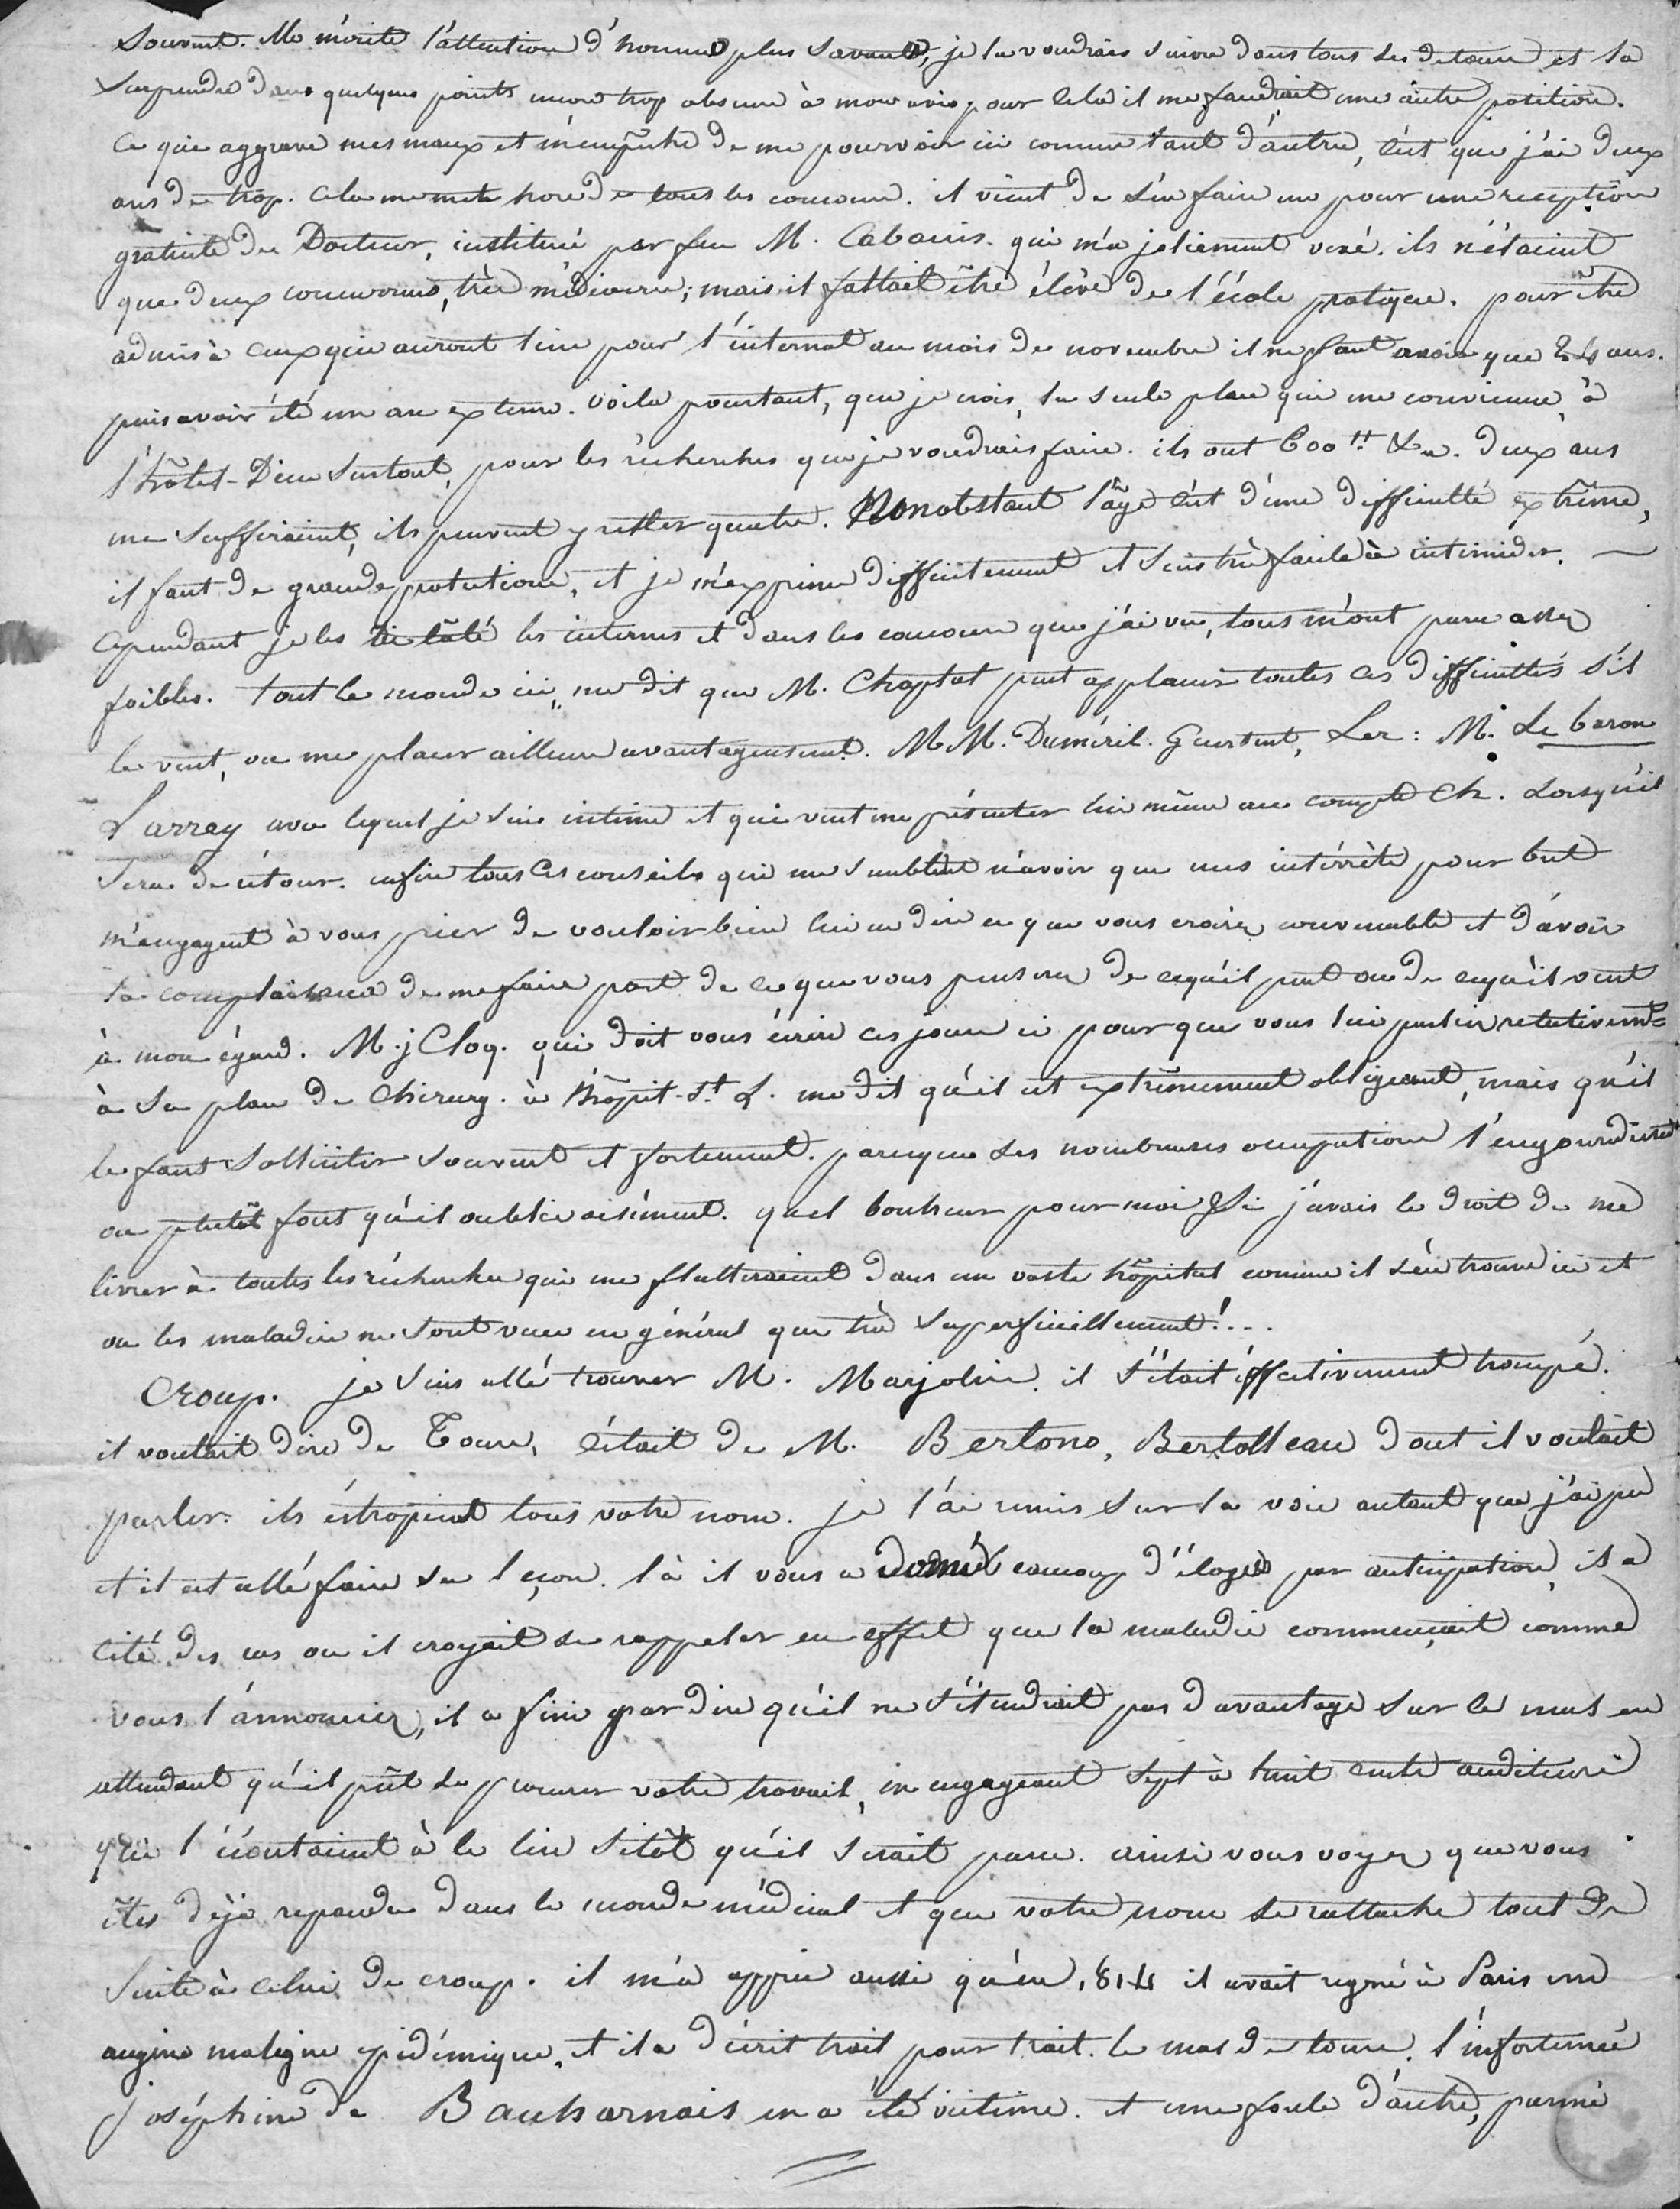 souvent. Elle mérite l'attention d'hommes plus savants, je la voudrais suivre dans tous ses détours et la
surprendre dans quelques points encore trop obscurs à mon avis, pour cela il me faudrait une autre position.
Ce qui aggrave mes maux et m'empêche de me pourvoir ici comme tant d'autres, c'est que j'ai deux
ans de trop. Cela me met hors de tous les concours. il vient de s'en faire un pour une reception
gratuite de Docteur, institué par feu M. Cabanis. qui m'a joliement vexé. ils n'étaient
que deux concurrens, très médiocres; mais il fallait être élève de l'école pratique. pour être
admis à ceux qui auront lieu pour l'internat au mois de novembre il ne faut avoir que 24 ans.
puis avoir été un an externe. voila pourtant, que je crois, la seule place qui me convienne, à
l'hôtel-Dieu surtout, pour les récherches que je voudrais faire. ils ont 600 tt &a. deux ans
me suffiraient, ils peuvent y rester quatre. Nonobstant l'âge c'est d'une difficulté extrême,
il faut de grandes protections, et je m'exprime difficilement et suis très facile à intimider. —
cependant je les ai tâté les internes et dans les concours que j'ai vu, tous m'ont paru assez
foibles. tout le monde ici me dit que M. Chaptal peut applanir toutes ces difficultés s'il
le veut, ou me placer ailleurs avantageusement. MM. Duméril. Guersent, Ler: M. Le baron
Larrey avec lequel je suis intime et qui veut me présenter lui même au compte Ch. Lorsqu'il
sera de retour. enfin tous ces conseils qui me semblent n'avoir que mes intérrêts pour but
m'engagent à vous prier de vouloir bien lui en dire ce que vous croirez convenable et d'avoir
la complaisance de me faire part de ce que vous penserez de ce qu'il peut ou de ce qu'il veut
à mon égard. M. j Cloq. qui doit vous écrire ces jours ci pour que vous lui parliez relativemt
à sa place de Chirurg. à l'hôpit-St. L. me dit qu'il est extrêmement obligeant, mais qu'il
le faut solliciter souvent et fortement. parceque ses nombreuses occupations l'engourdissent
ou plutôt font qu'il oublie aisément. quel bonheur pour moi si j'avais le droit de me
livrer à toutes les récherches qui me flatteraient dans un vaste hôpital comme il s'en trouve ici et
ou les maladies ne sont vues en général que très superficiellement!...
Croup. je suis allé trouver M. Marjolin. il s'était éffectivement trompé.
il voulait dire de Tours, c'était de M. Bertono, Bertolleau dont il voulait
parler. ils éstropient tous votre nom. je l'ai remis sur la voie autant que j'ai pu
et il est allé faire sa leçon. là il vous a donné beaucoup d'éloges par anticipation, il a
cité des cas ou il croyait se rappeler en effet que la maladie commençait comme
vous l'annonciez, il a fini par dire qu'il ne s'étendrait pas davantage sur le mal en
attendant qu'il pût se procurer votre travail, en engageant sept à huit cents auditeurs
qui l'écoutaient à le lire sitôt qu'il serait paru. ainsi vous voyez que vous
êtes déjà repandu dans le monde médical et que votre nom se rattache tout de
suite à celui de croup. il m'a appris aussi qu'en 1814 il avait regné à Paris une
angine maligne épidémique, et il a décrit trait pour trait. le mal de tours. l'infortunée
joséphine de Bauharnais en a été victime. et une foule d'autres, parmi